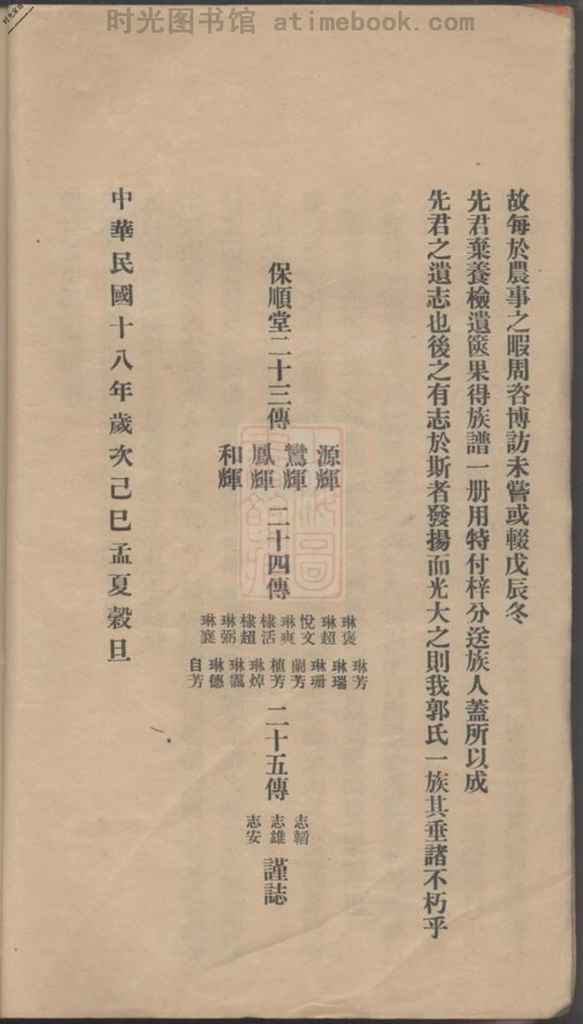 时光图书馆 atimebook.com
故每於農事之暇周咨博訪未嘗或輟戊辰冬
先君棄養檢遺篋果得族譜一册用特付梓分送族人蓋所以成
先君之遺志也後之有志於斯者發揚而光大之則我郭氏一族其垂諸不朽乎
保順堂二十三傳
源輝
鸞輝
鳳輝
和輝
二十四傳
琳褒
琳超
悅文
琳爽
棣活
棣超
琳弼
琳襄
琳芳
琳瑞
琳珊
蘭芳
植芳
琳焯
琳靄
琳德
自芳
二十五傳
志韜
志雄
志安
謹誌
中華民國十八年歲次己巳孟夏穀旦